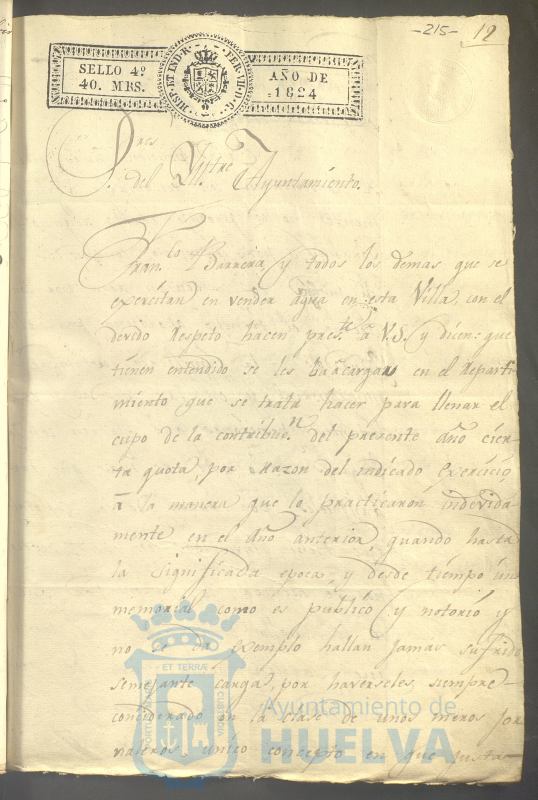 -215- 19
HISP. ET IND. R. FER. VII. D. G.
SELLO 4º AÑO DE
40. MRS. 1824
S.res
del Yll.tre Ayuntamiento.
Fran.co Barrera, y todos los demas que se
exercitan en vender agua en esta Villa, con el
devido respeto hacen pres.te a V.S. y dicen: que
tienen entendido se les va a cargar en el reparti
miento que se trata hacer para llenar el
cupo de la contribuc.n del presente año cier-
ta quota, por razon del indicado exercicio,
a la manera que lo practicaron indevida
mente en el año anterior, quando hasta
la significada epoca, y desde tiempo in
memorial como es publico y notorio y
no se da exemplo hallan jamas sufrido
semejante carga, por haverseles siempre
considerado en la clase de unos meros jor
naleros, unico concepto en que justa-
ET TERRÆ
PORTUS MARIS
CUSTODIA
Ayuntamiento de
HUELVA